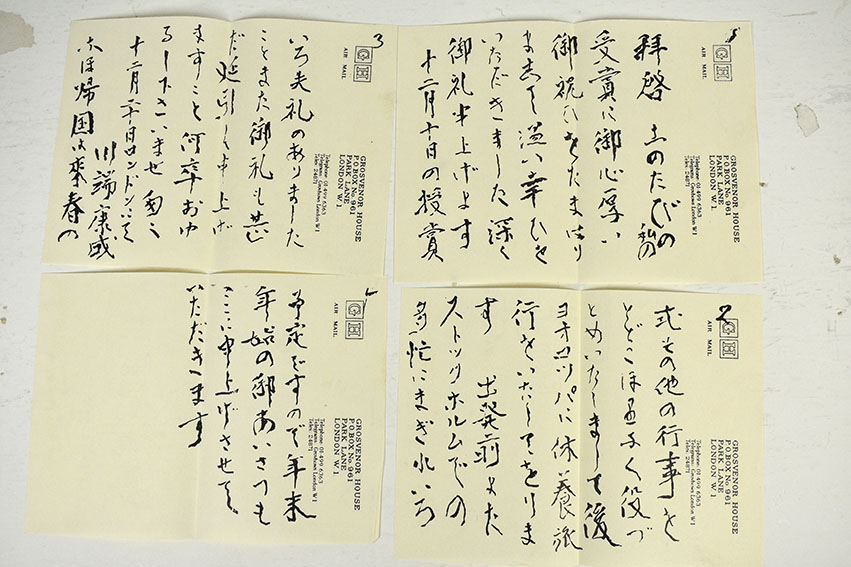 1
GH
AIR MAIL
GROSVENOR HOUSE
P.O. BOX No. 961
PARK LANE
LONDON W.1
Telephone: 01-499 6363
Telegrams: Grovhows London W1
Telex: 24871
拝啓 このたびの私の
受賞に御心厚い
御祝ひをたまはり
幸ひを
いただきました 深く
御礼申上げます
十二月十日の授賞
2
GH
AIR MAIL
GROSVENOR HOUSE
P.O. BOX No. 961
PARK LANE
LONDON W.1
Telephone: 01-499 6363
Telegrams: Grovhows London W1
Telex: 24871
式その他の行事を
とどこほりなく役づ
とめいたしまして後
ヨオロツパに休養旅
行をいたしてをりま
す 出発前また
ストックホルムでの
多忙にまぎれいろ
3
GH
AIR MAIL
GROSVENOR HOUSE
P.O. BOX No. 961
PARK LANE
LONDON W.1
Telephone: 01-499 6363
Telegrams: Grovhows London W1
Telex: 24871
いろ失礼のありました
ことまた御礼も甚
だ延引して申上げ
ますこと何卒おゆ
るし下さいませ 匆々
十二月二十日ロンドンにて
川端康成
なほ帰国は来春の
4
GH
AIR MAIL
GROSVENOR HOUSE
P.O. BOX No. 961
PARK LANE
LONDON W.1
Telephone: 01-499 6363
Telegrams: Grovhows London W1
Telex: 24871
予定ですので年末
年始の御あいさつも
ここに申上げさせて
いただきます